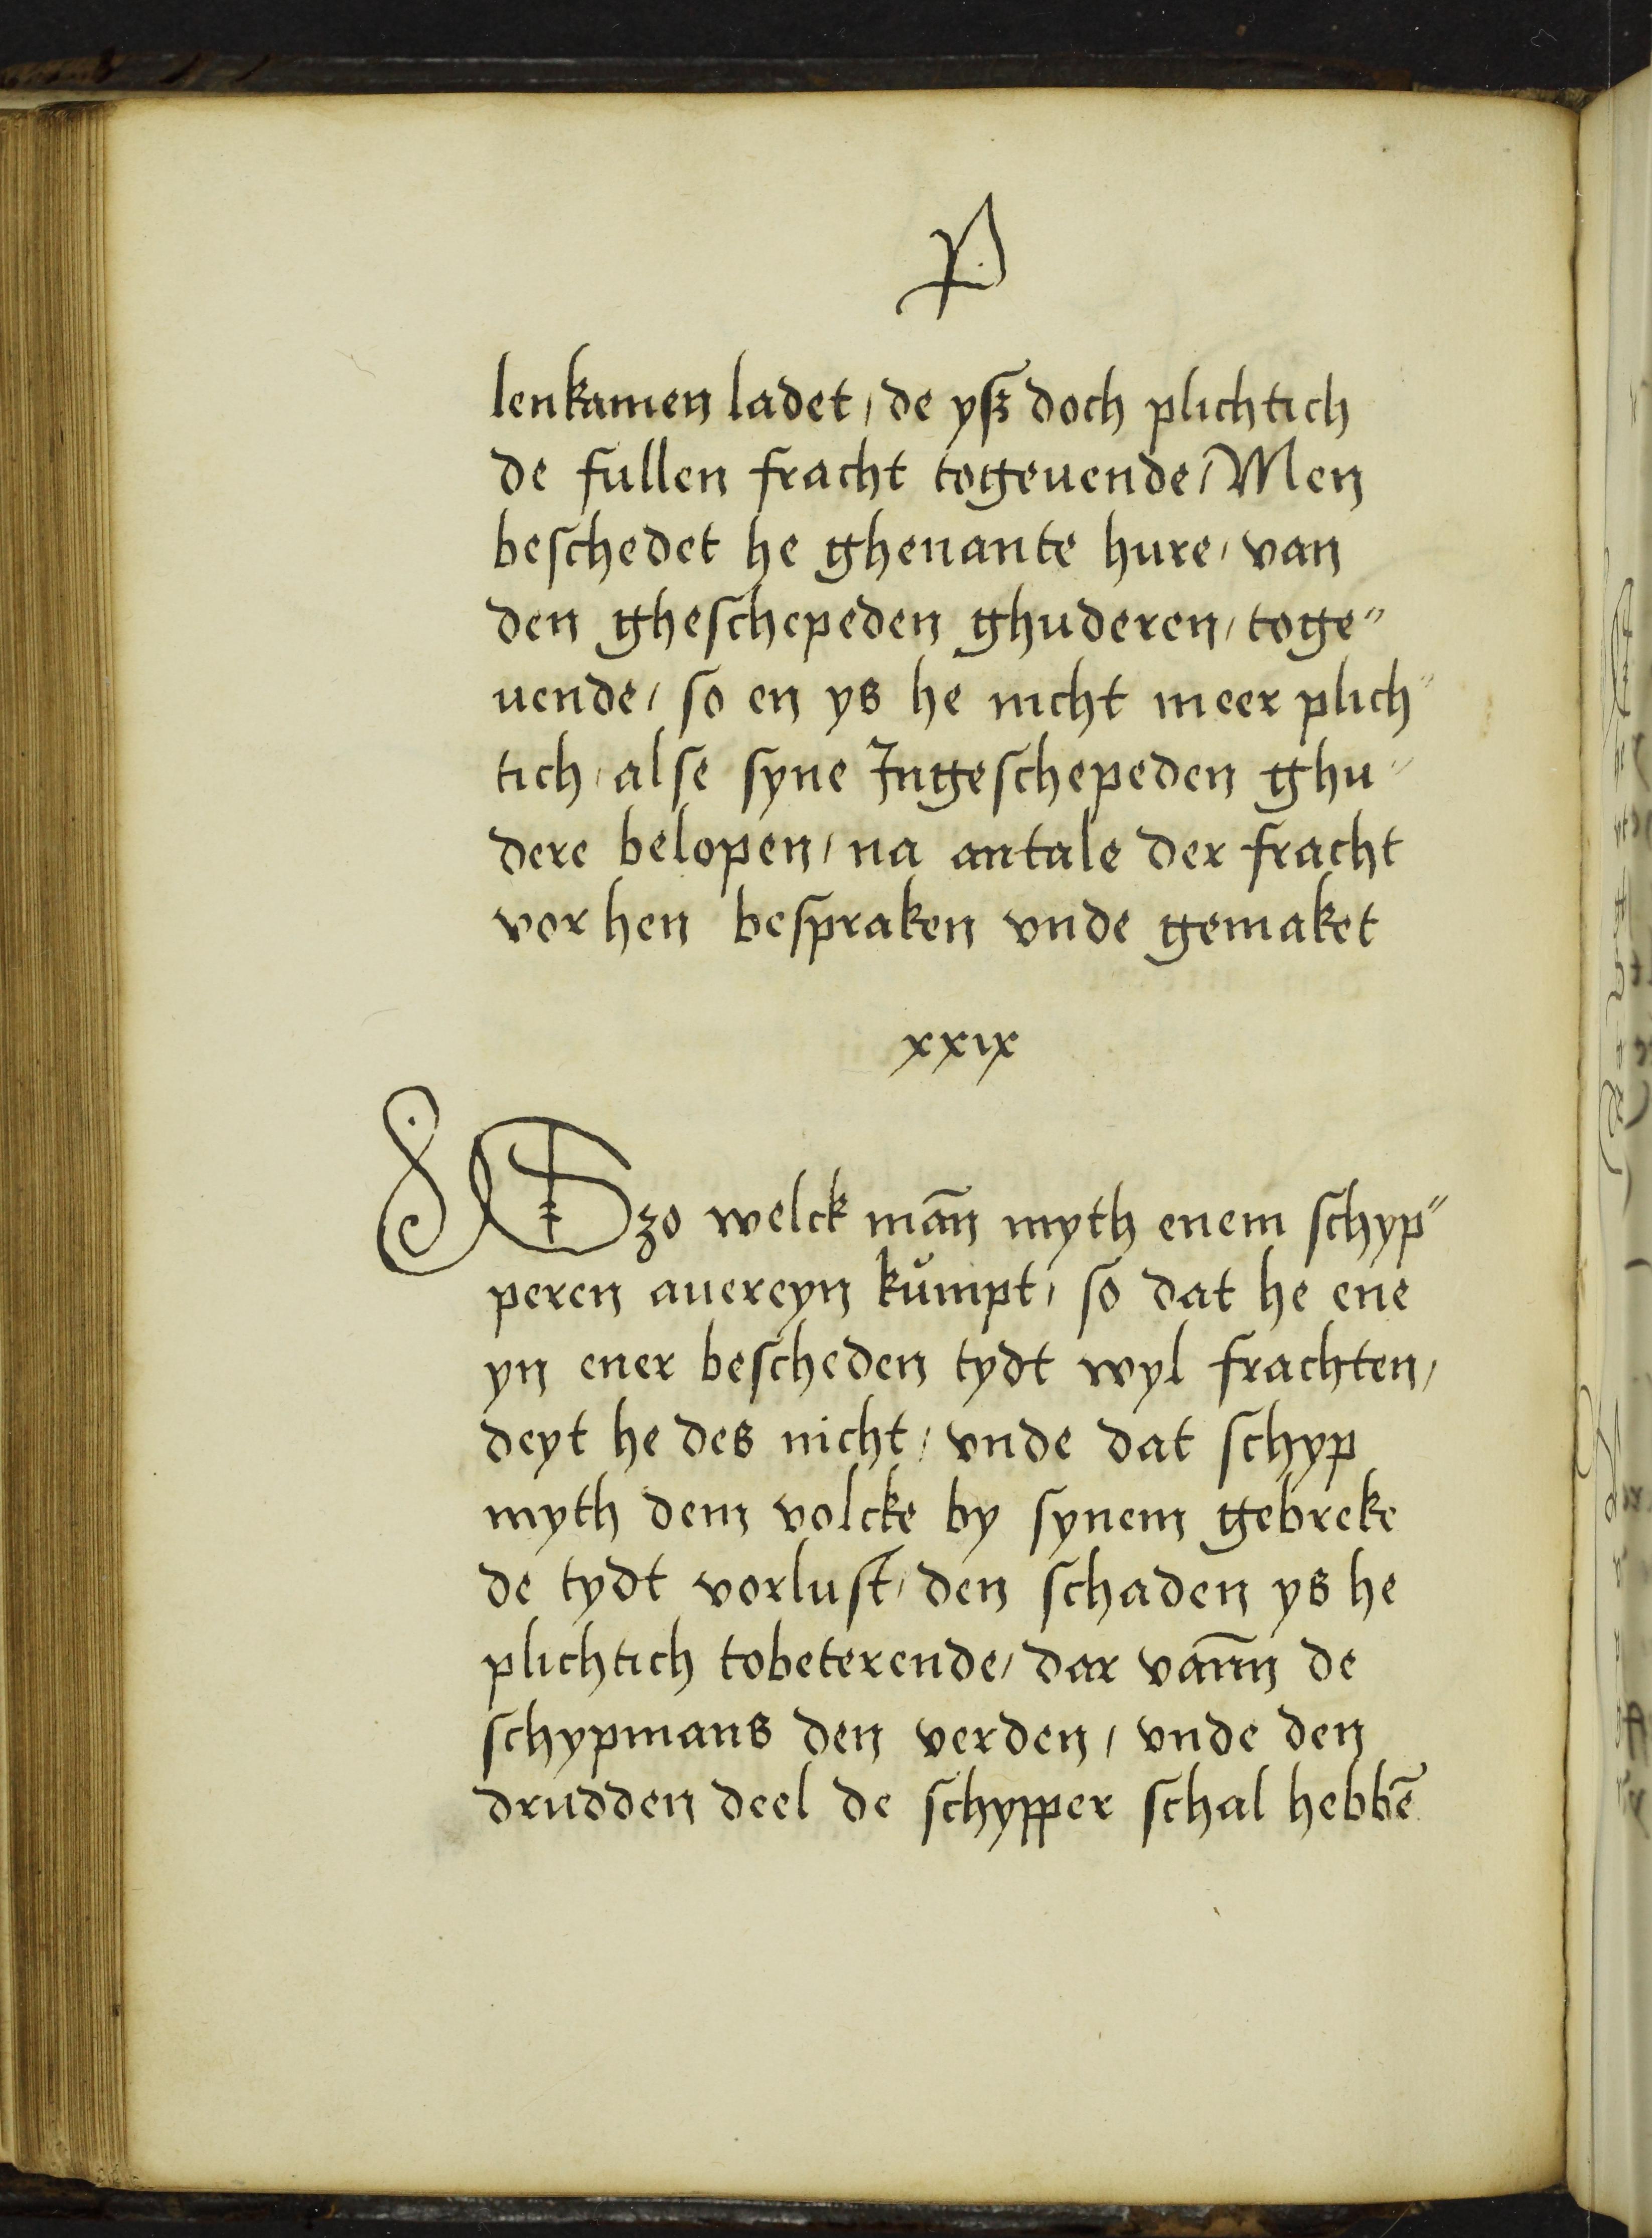 P
lenkamen ladet / de ysz doch plichtich
de fullen fracht togeuende / Men
beschedet he ghenante hure / van
den gheschepeden ghuderen / toge"
uende / so en ys he nicht meer plich"
tich / alse syne Ingeschepeden ghu"
dere belopen / na antale der fracht
vor hen bespraken vnde gemaket
xxix
Szo welck man̄ myth enem schyp"
peren auereyn kůmpt / so dat he ene
yn ener bescheden tydt wyl frachten /
deyt he des nicht / vnde dat schyp
myth dem volcke by synem gebreke
de tydt vorlust / den schaden ys he
plichtich tobeterende / dar van̄n de
schypmans den verden / vnde den
drudden deel de schypper schal hebbē